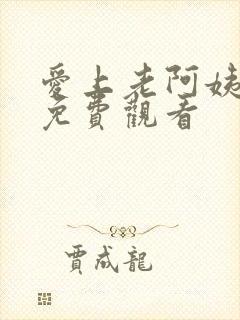 愛上老阿姨
免費觀看
賈成龍